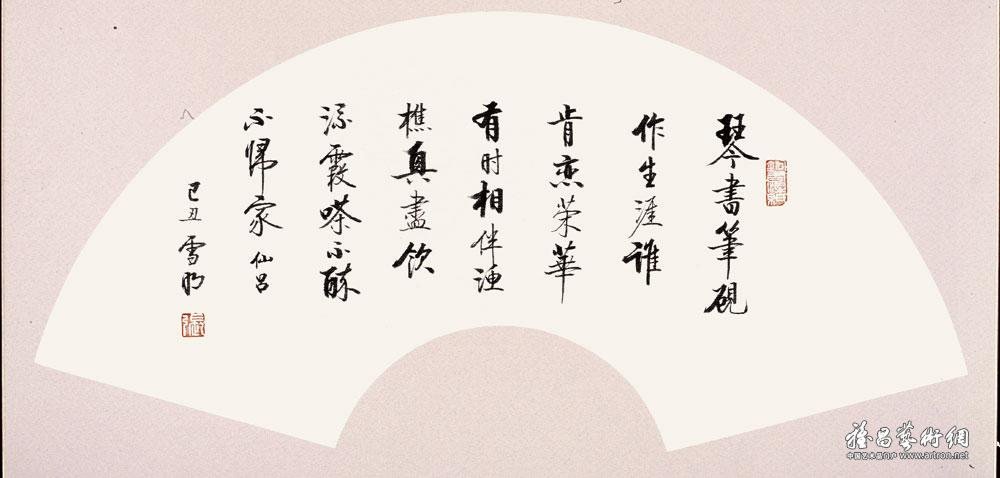 琴書筆硯
作生涯誰
肯恋荣華
有时相伴渔
樵真盡饮
流霞嗏不醉
不帰家 仙吕
己丑 雪
雅昌藝術網
中国艺术品门户 www.artron.net